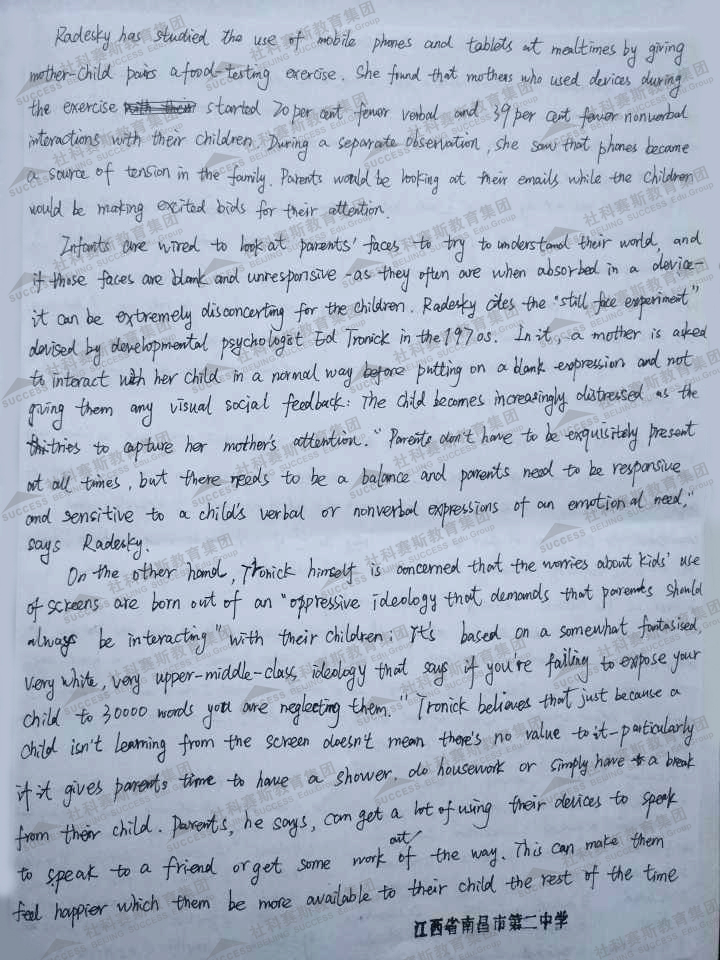 Radesky has studied the use of mobile phones and tablets at mealtimes by giving
mother-child pairs a food-testing exercise. She fund that mothers who used devices during
the exercise started 20 per cent fewer verbal and 39 per cent fewer nonverbal
interactions with their children. During a separate observation, she saw that phones became
a source of tension in the family. Parents would be looking at their emails while the children
would be making excited bids for their attention.
Infants are wired to look at parents' faces to try to understand their world, and
if those faces are blank and unresponsive -as they often are when absorbed in a device-
it can be extremely disconcerting for the children. Radesky cites the "still face experiment"
devised by developmental psychologist Ed Tronick in the 1970s. In it, a mother is asked
to interact with her child in a normal way before putting on a blank expression and not
giving them any visual social feedback: The child becomes increasingly distressed as the
tries to capture her mother's attention. "Parents don't have to be exquisitely present
at all times, but there needs to be a balance and parents need to be responsive
and sensitive to a child's verbal or nonverbal expressions of an emotional need,"
says Radesky.
On the other hand, Tronick himself is concerned that the worries about kids' use
of screens are born out of an "oppressive ideology that demands that parents should
always be interacting" with their children: It's based on a somewhat fantasised,
very white, very upper-middle-class ideology that says if you're failing to expose your
child to 30000 words you are neglecting them." Tronick believes that just because a
child isn't learning from the screen doesn't mean there's no value to it-particularly
if it gives parents time to have a shower, do housework or simply have a break
from their child. Parents, he says, can get a lot of using their devices to speak
to speak to a friend or get some work out of the way. This can make them
feel happier which them be more available to their child the rest of the time
江西省南昌市第二中学
社科赛斯教育集团
SUCCESS BEIJING Edu.Group